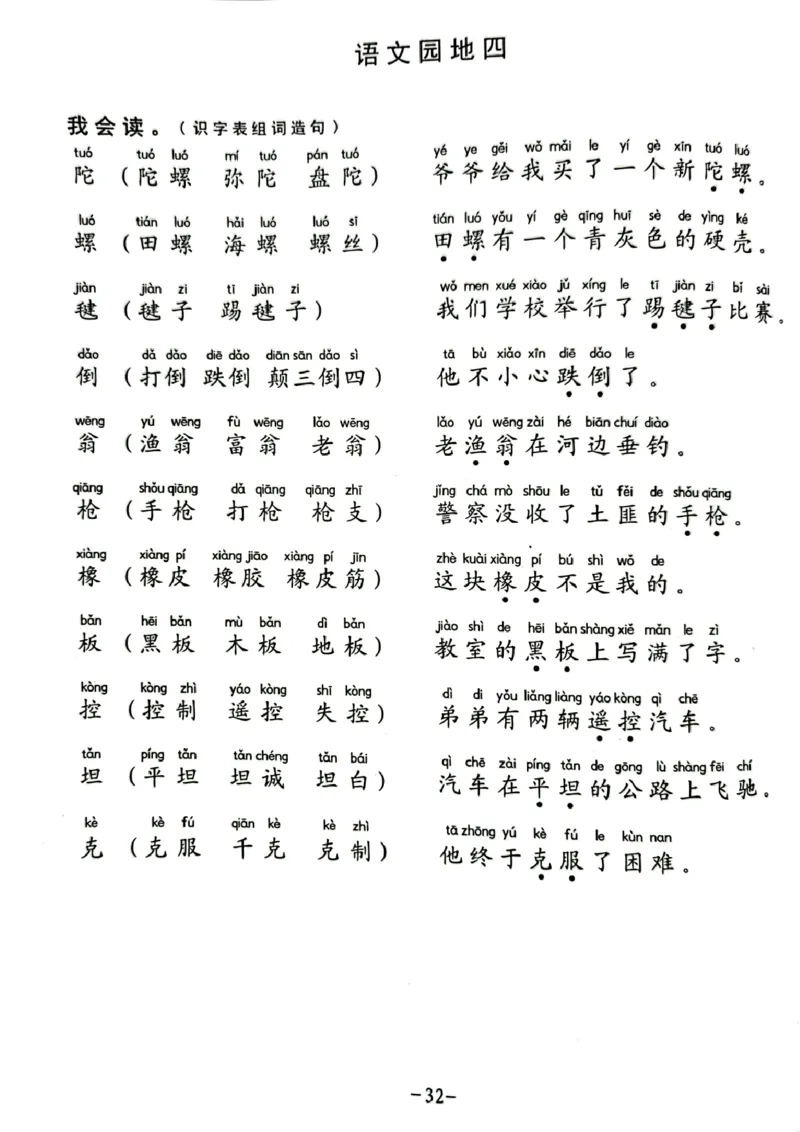 语文园地四
我会读。（识字表组词造句）
tuó tuó luó mí tuó pán tuó
陀（陀螺 弥陀 盘陀）
yé ye gěi wǒ mǎi le yí gè xīn tuó luó
爷爷给我买了一个新陀螺。
luó tián luó hǎi luó luó sī
螺（田螺 海螺 螺丝）
tián luó yǒu yí gè qīng huī sè de yìng ké
田螺有一个青灰色的硬壳。
jiàn jiàn zi tī jiàn zi
毽（毽子 踢毽子）
wǒ men xué xiào jǔ xíng le tī jiàn zi bǐ sài
我们学校举行了踢毽子比赛。
dǎo dǎ dǎo diē dǎo diān sān dǎo sì
倒（打倒 跌倒 颠三倒四）
tā bù xiǎo xīn diē dǎo le
他不小心跌倒了。
wēng yú wēng fù wēng lǎo wēng
翁（渔翁 富翁 老翁）
lǎo yú wēng zài hé biān chuí diào
老渔翁在河边垂钓。
qiāng shǒu qiāng dǎ qiāng qiāng zhī
枪（手枪 打枪 枪支）
jǐng chá mò shōu le tǔ fěi de shǒu qiāng
警察没收了土匪的手枪。
xiàng xiàng pí xiàng jiāo xiàng pí jīn
橡（橡皮 橡胶 橡皮筋）
zhè kuài xiàng pí bú shì wǒ de
这块橡皮不是我的。
bǎn hēi bǎn mù bǎn dì bǎn
板（黑板 木板 地板）
jiào shì de hēi bǎn shàng xiě mǎn le zì
教室的黑板上写满了字。
kòng kòng zhì yáo kòng shī kòng
控（控制 遥控 失控）
dì di yǒu liǎng liàng yáo kòng qì chē
弟弟有两辆遥控汽车。
tǎn píng tǎn tǎn chéng tǎn bái
坦（平坦 坦诚 坦白）
qì chē zài píng tǎn de gōng lù shàng fēi chí
汽车在平坦的公路上飞驰。
kè kè fú qiān kè kè zhì
克（克服 千克 克制）
tā zhōng yú kè fú le kùn nan
他终于克服了困难。
-32-